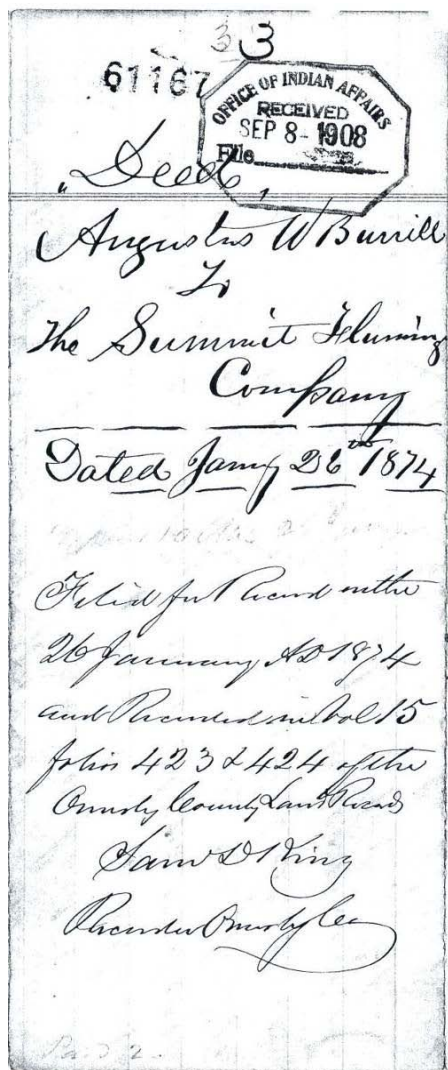 33
61167
OFFICE OF INDIAN AFFAIRS
RECEIVED
SEP 8 - 1908
File
"Deed"
Augustus W Burrill
To
The Summit Fluming
Company
Dated Jany 26th 1874
Filed for Record on the
26 January AD 1874
and Recorded in Vol 15
folios 423 & 424 of the
Ormsby County Land Records
Saml D King
Recorder Ormsby Co